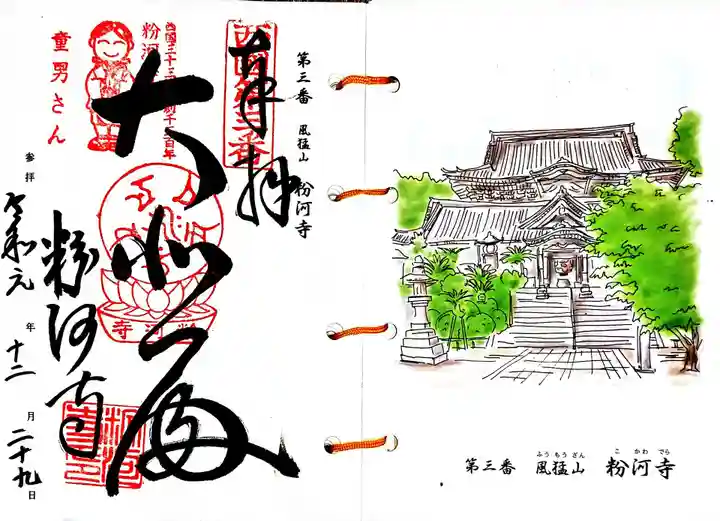 第三番 風猛山 粉河寺
奉拝
西国第三番
大悲殿
粉河寺
童男さん
参拝
令和元年十二月二十九日
粉河寺
ふうもうざん こかわでら
第三番 風猛山 粉河寺